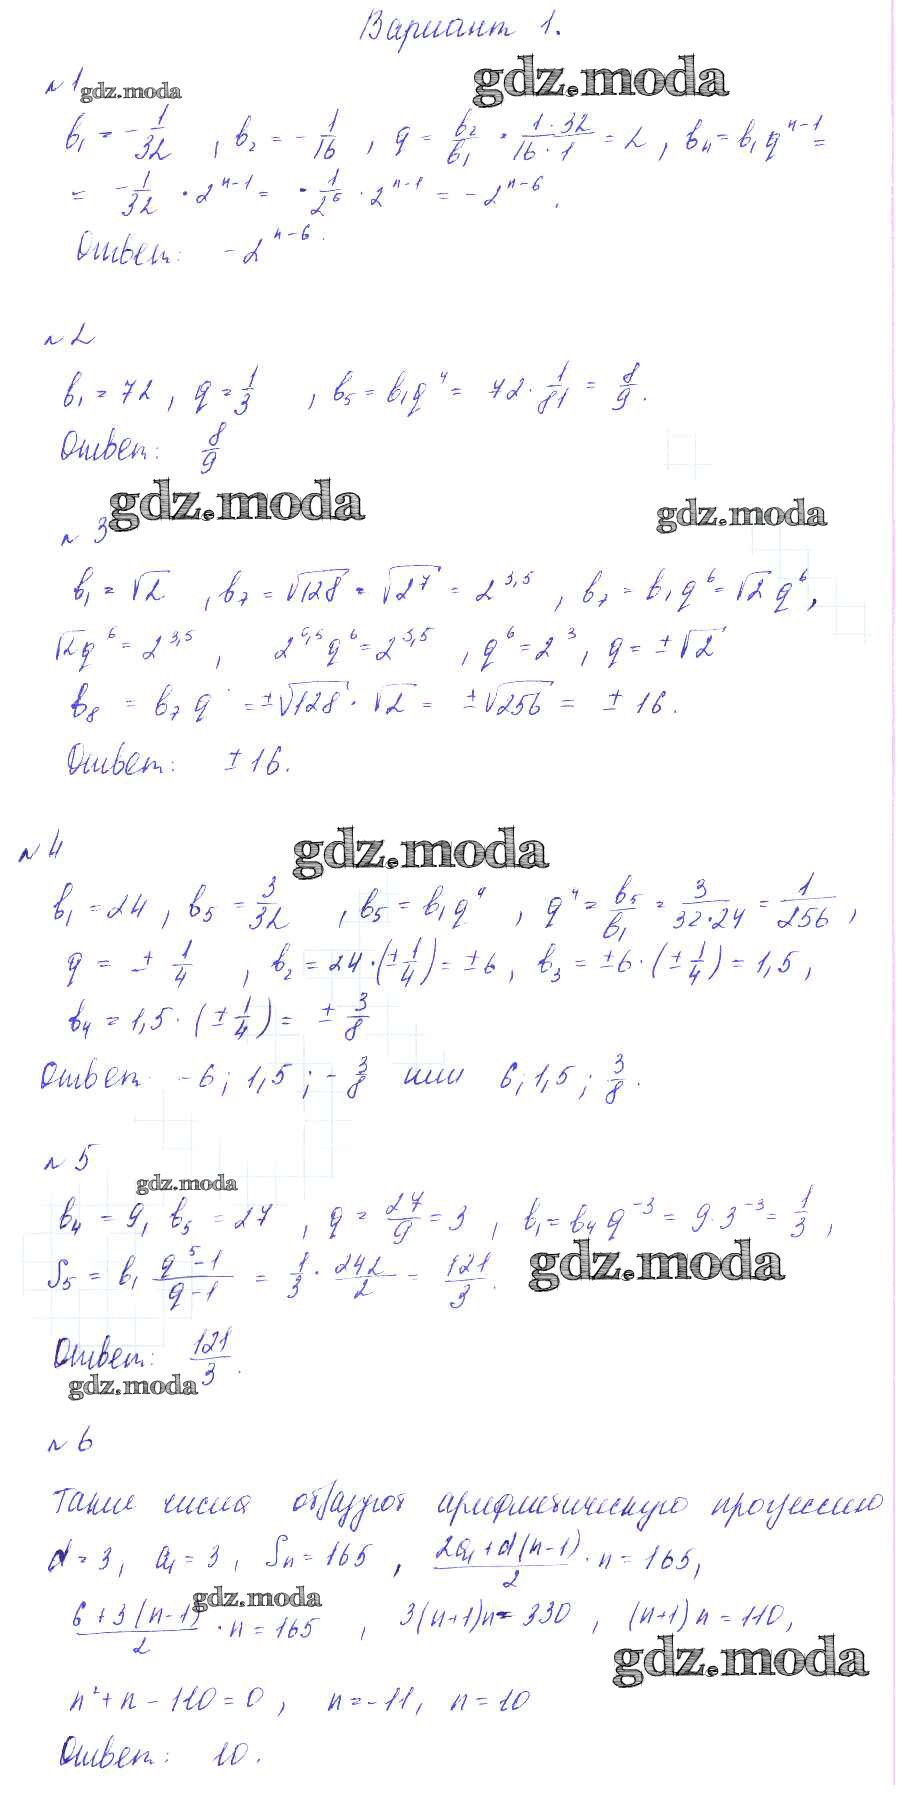 Вариант 1.
№1 gdz.moda gdz.moda
b₁ = -1/32, b₂ = -1/16, q = b₂/b₁ = (1·32)/(16·1) = 2, bₙ = b₁qⁿ⁻¹ =
= -1/32 · 2ⁿ⁻¹ = -1/2⁶ · 2ⁿ⁻¹ = -2ⁿ⁻⁶.
Ответ: -2ⁿ⁻⁶.
№2
b₁ = 72, q = 1/3, b₅ = b₁q⁴ = 72 · 1/81 = 8/9.
Ответ: 8/9
gdz.moda gdz.moda
№3
b₁ = √2, b₇ = √128 = √2⁷ = 2^3,5, b₇ = b₁q⁶ = √2 q⁶,
√2q⁶ = 2^3,5, 2^0,5 q⁶ = 2^3,5, q⁶ = 2³, q = ±√2
b₈ = b₇q = ±√128 · √2 = ±√256 = ±16.
Ответ: ±16.
№4 gdz.moda
b₁ = 24, b₅ = 3/32, b₅ = b₁q⁴, q⁴ = b₅/b₁ = 3/(32·24) = 1/256,
q = ±1/4, b₂ = 24·(±1/4) = ±6, b₃ = ±6·(±1/4) = 1,5,
b₄ = 1,5·(±1/4) = ±3/8
Ответ: -6; 1,5; -3/8 или 6; 1,5; 3/8.
№5
gdz.moda
b₄ = 9, b₅ = 27, q = 27/9 = 3, b₁ = b₄q⁻³ = 9·3⁻³ = 1/3,
S₅ = b₁ (q⁵-1)/(q-1) = 1/3 · 242/2 = 121/3. gdz.moda
Ответ: 121/3.
gdz.moda
№6
Такие числа образуют арифметическую прогрессию
d = 3, a₁ = 3, Sₙ = 165, (2a₁+d(n-1))/2 · n = 165,
gdz.moda
(6+3(n-1))/2 · n = 165, 3(n+1)n = 330, (n+1)n = 110,
gdz.moda
n²+n-110=0, n=-11, n=10
Ответ: 10.